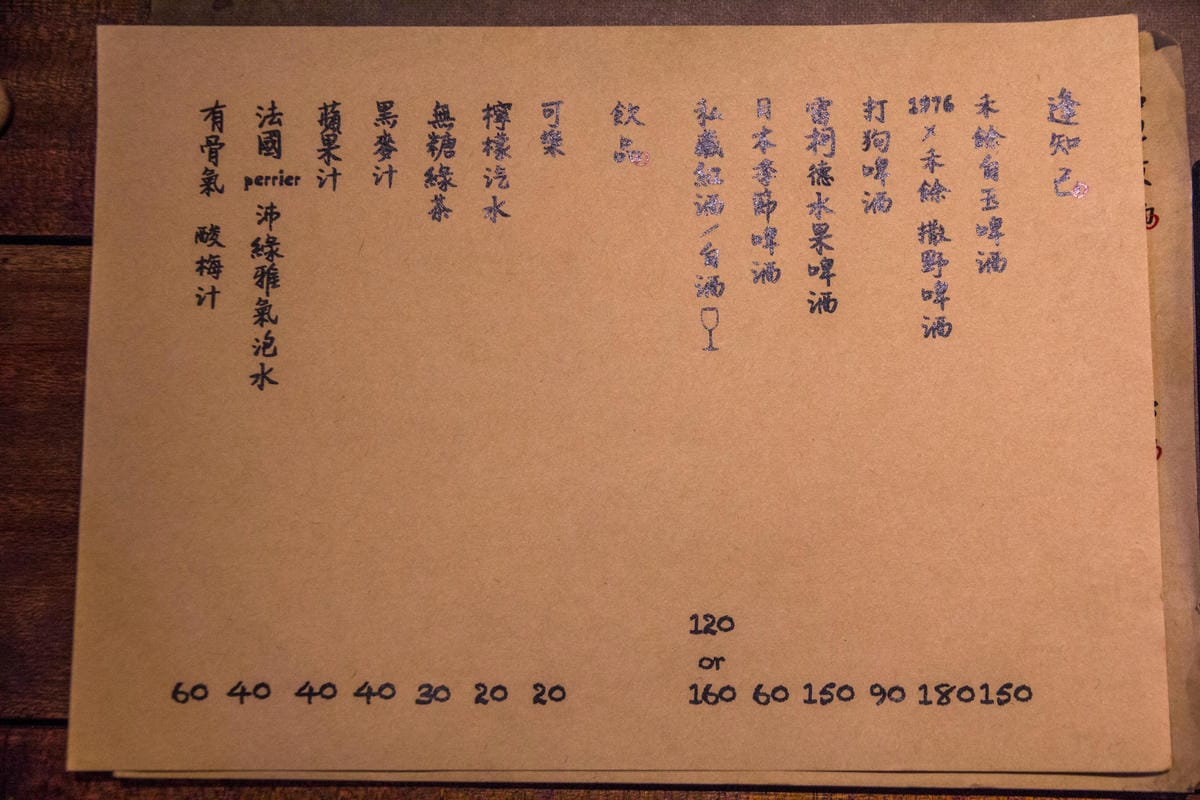 逢知己
禾餘白玉啤酒 150
1976 x 禾餘 撒野啤酒 180
打狗啤酒 90
雷柯德水果啤酒 150
日本季節啤酒 60
私藏紅酒／白酒 120 or 160
飲品
可樂 20
檸檬汽水 20
無糖綠茶 30
黑麥汁 40
蘋果汁 40
法國 perrier 沛綠雅氣泡水 40
有骨氣 酸梅汁 60